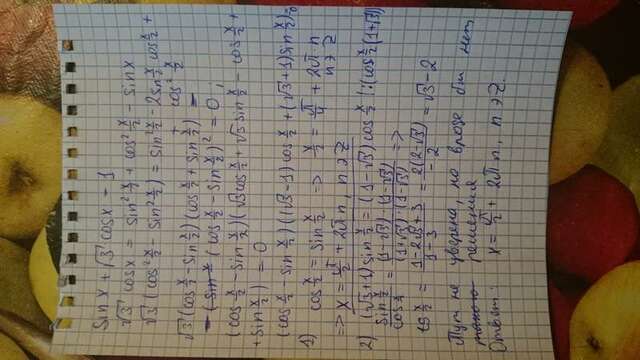 sin x + √3 cos x - 1
√3 cos x = sin² x/2 + cos² x/2 - sin x
√3 (cos² x/2 - sin² x/2) = sin² x/2 - 2 sin x/2 cos x/2 +
cos² x/2
√3 (cos x/2 - sin x/2)(cos x/2 + sin x/2) -
- (cos x/2 - sin x/2)² = 0;
(cos x/2 - sin x/2)(√3 cos x/2 + √3 sin x/2 - cos x/2 +
+ sin x/2) = 0
(cos x/2 - sin x/2)((√3-1) cos x/2 + (√3+1) sin x/2) = 0
1) cos x/2 = sin x/2 => x/2 = π/4 + 2π·n
n э Z
=> x = π/2 + 2π·n, n э Z
2) (√3+1) sin x/2 = (1-√3) cos x/2 |:(cos x/2 (1+√3))
sin x/2 / cos x/2 = (1-√3)·(1-√3) / (1+√3)·(1-√3) =>
tg x/2 = 1-2√3+3 / 1-3 = 2(2-√3) / -2 = √3-2
Тут не уверена, но вроде бы нет
решения
Ответ: x = π/2 + 2π·n, n э Z.